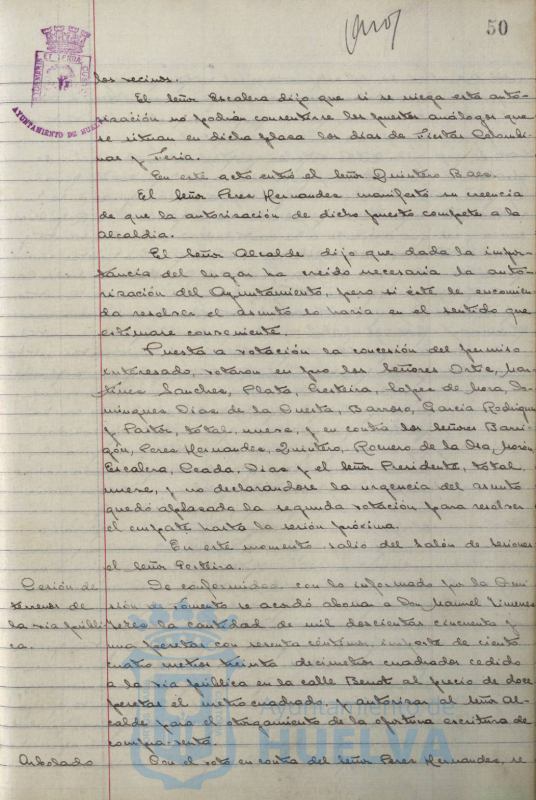 50
AYUNTAMIENTO DE HUELVA
los vecinos.
El Señor Escalera dijo que si se niega esta auto-
rización no podrán consentirse los puestos análogos que
se situan en dicha plaza los días de Fiestas Colombi-
nas y Feria.
En este acto entró el Señor Quintero Baez.
El Señor Perez Hernandez manifestó su creencia
de que la autorización de dicho puesto compete a la
alcaldía.
El Señor Alcalde dijo que dada la impor-
tancia del lugar ha creido necesaria la auto-
rización del Ayuntamiento, pero si éste le encomien-
da resolver el asunto lo haría en el sentido que
estimase conveniente.
Puesta a votación la concesión del permiso
interesado, votaron en pro los Señores Ortiz, Mar-
tinez Sanchez, Plata, Testeira, Lopez de Mora, Do-
minguez Diaz de la Puerta, Barroso, Garcia Rodriguez
y Pastor, total nueve, y en contra los Señores Barri-
gón, Perez Hernandez, Quintero, Romero de la Osa, Morón
Escalera, Ceada, Diaz y el Señor Presidente, total
nueve, y no declarandose la urgencia del asunto
quedó aplazada la segunda votación para resolver
el empate hasta la sesión próxima.
En este momento salió del Salón de Sesiones
el Señor Testeira.
Cesión de
terrenos de
la via públi-
ca.
De conformidad con lo informado por la Comi-
sión de Fomento se acordó abonar a Don Manuel Jimenez
la cantidad de mil doscientas cincuenta y
una pesetas con sesenta céntimos, importe de ciento
cuatro metros treinta decímetros cuadrados cedido
a la via pública en la calle Benot al precio de doce
pesetas el metro cuadrado y autorizar al Señor Al-
calde para el otorgamiento de la oportuna escritura de
compra-venta.
Arbolado
Con el voto en contra del Señor Perez Hernandez, se
Ayuntamiento de
HUELVA